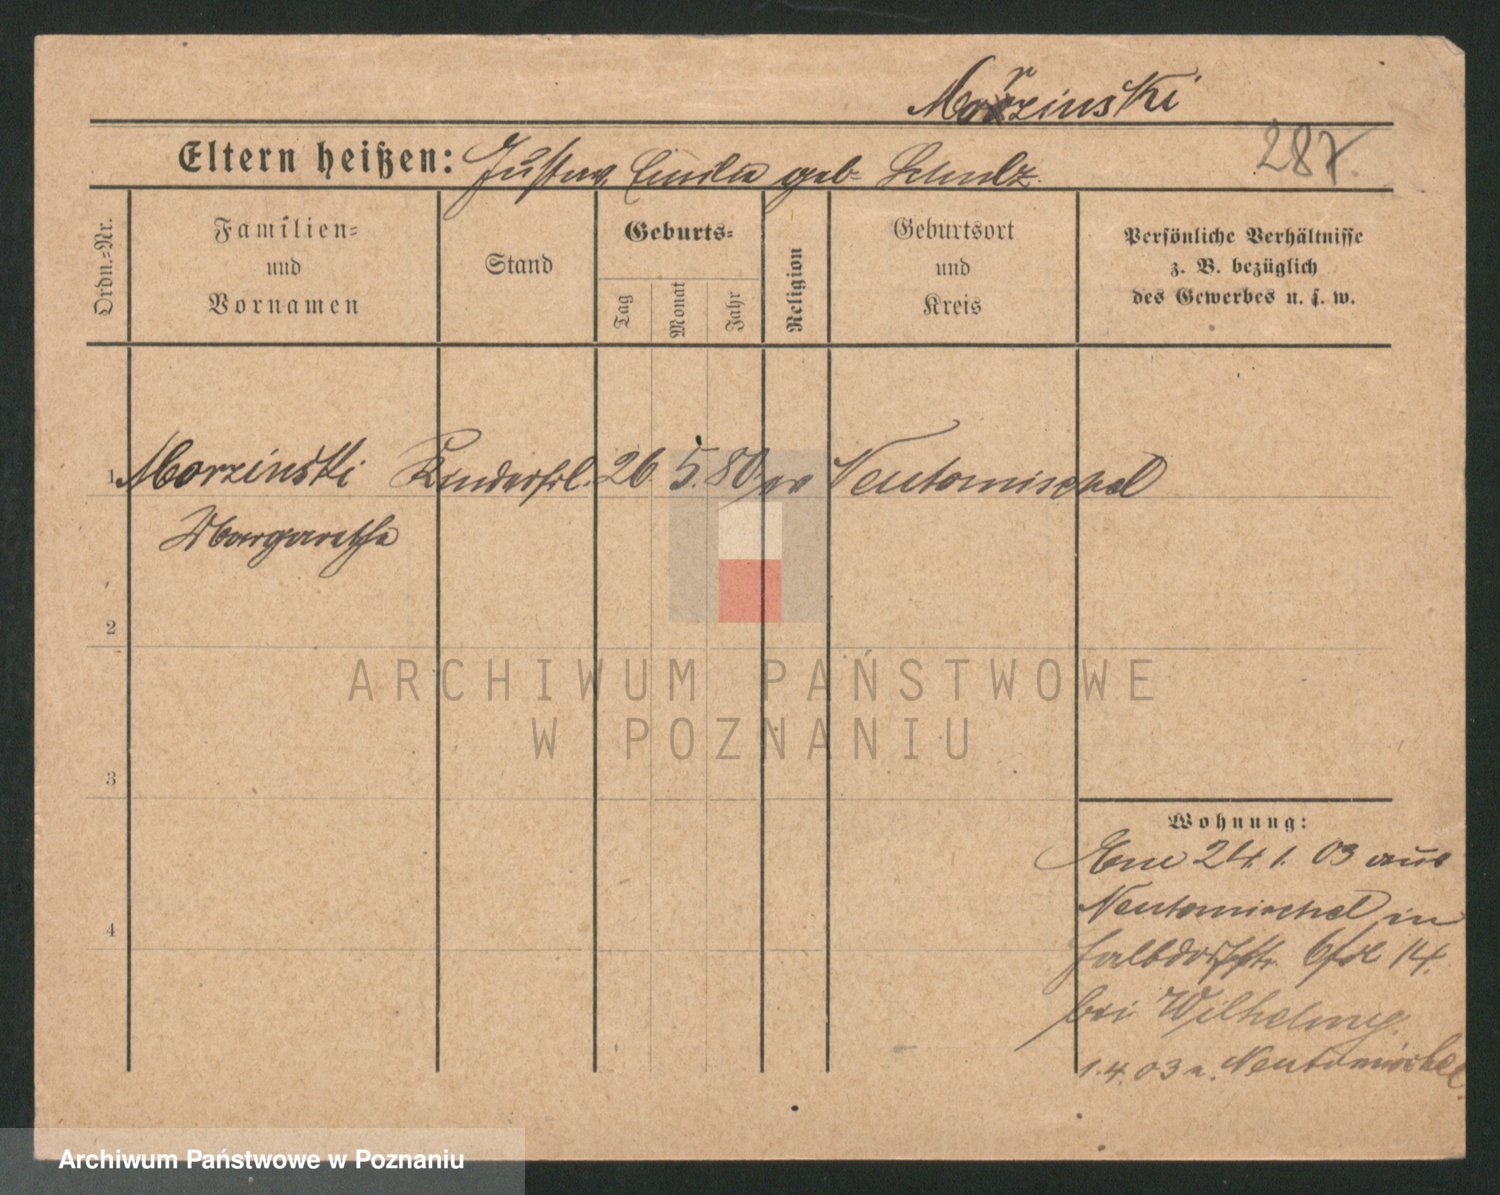 Morzinski
287
Eltern heißen: Gustav, Emilie geb. Schulz.
Ordn.-Nr.
Familien-
und
Vornamen
Stand
Geburts-
Tag
Monat
Jahr
Religion
Geburtsort
und
Kreis
Persönliche Verhältnisse
z. B. bezüglich
des Gewerbes u. s. w.
1 Morzinski Kinderfrl. 26 5. 80 ev Neutomischel
Margarethe
2
ARCHIWUM PAŃSTWOWE
W POZNANIU
3
Wohnung:
24. 1. 03 aus
Neutomischel in
14.
4
bei Wilhelmy.
1.4.03 n. Neutomischel.
Archiwum Państwowe w Poznaniu